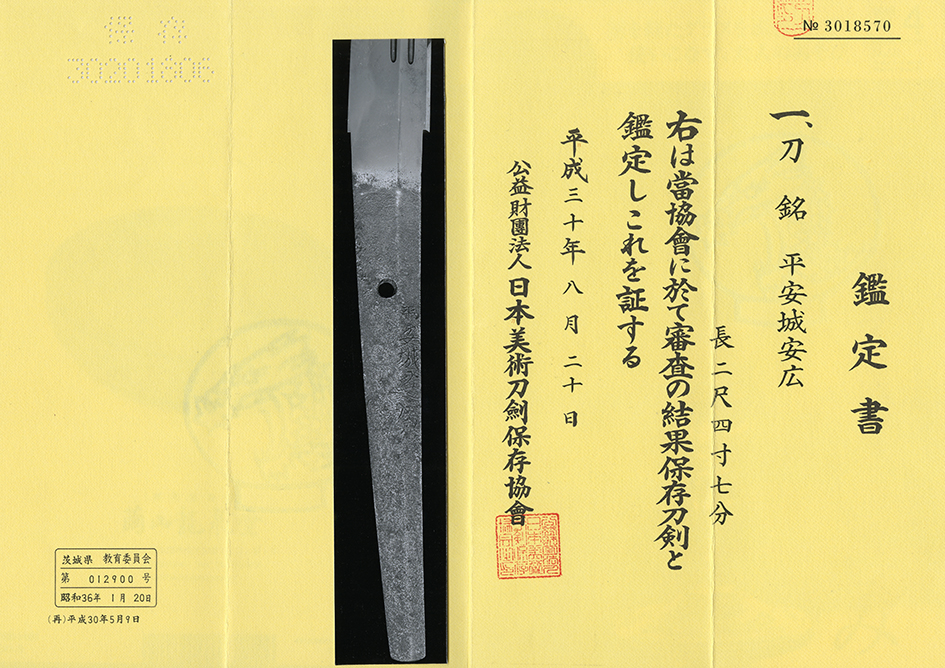 № 3018570
鑑定書
一、刀 銘 平安城安広
長二尺四寸七分
右は當協會に於て審査の結果保存刀剣と
鑑定しこれを証する
平成三十年八月二十日
公益財團法人 日本美術刀劍保存協會
保存
30201606
平安城安広
茨城県 教育委員会
第 012900 号
昭和36年 1月 20日
(再)平成30年5月9日